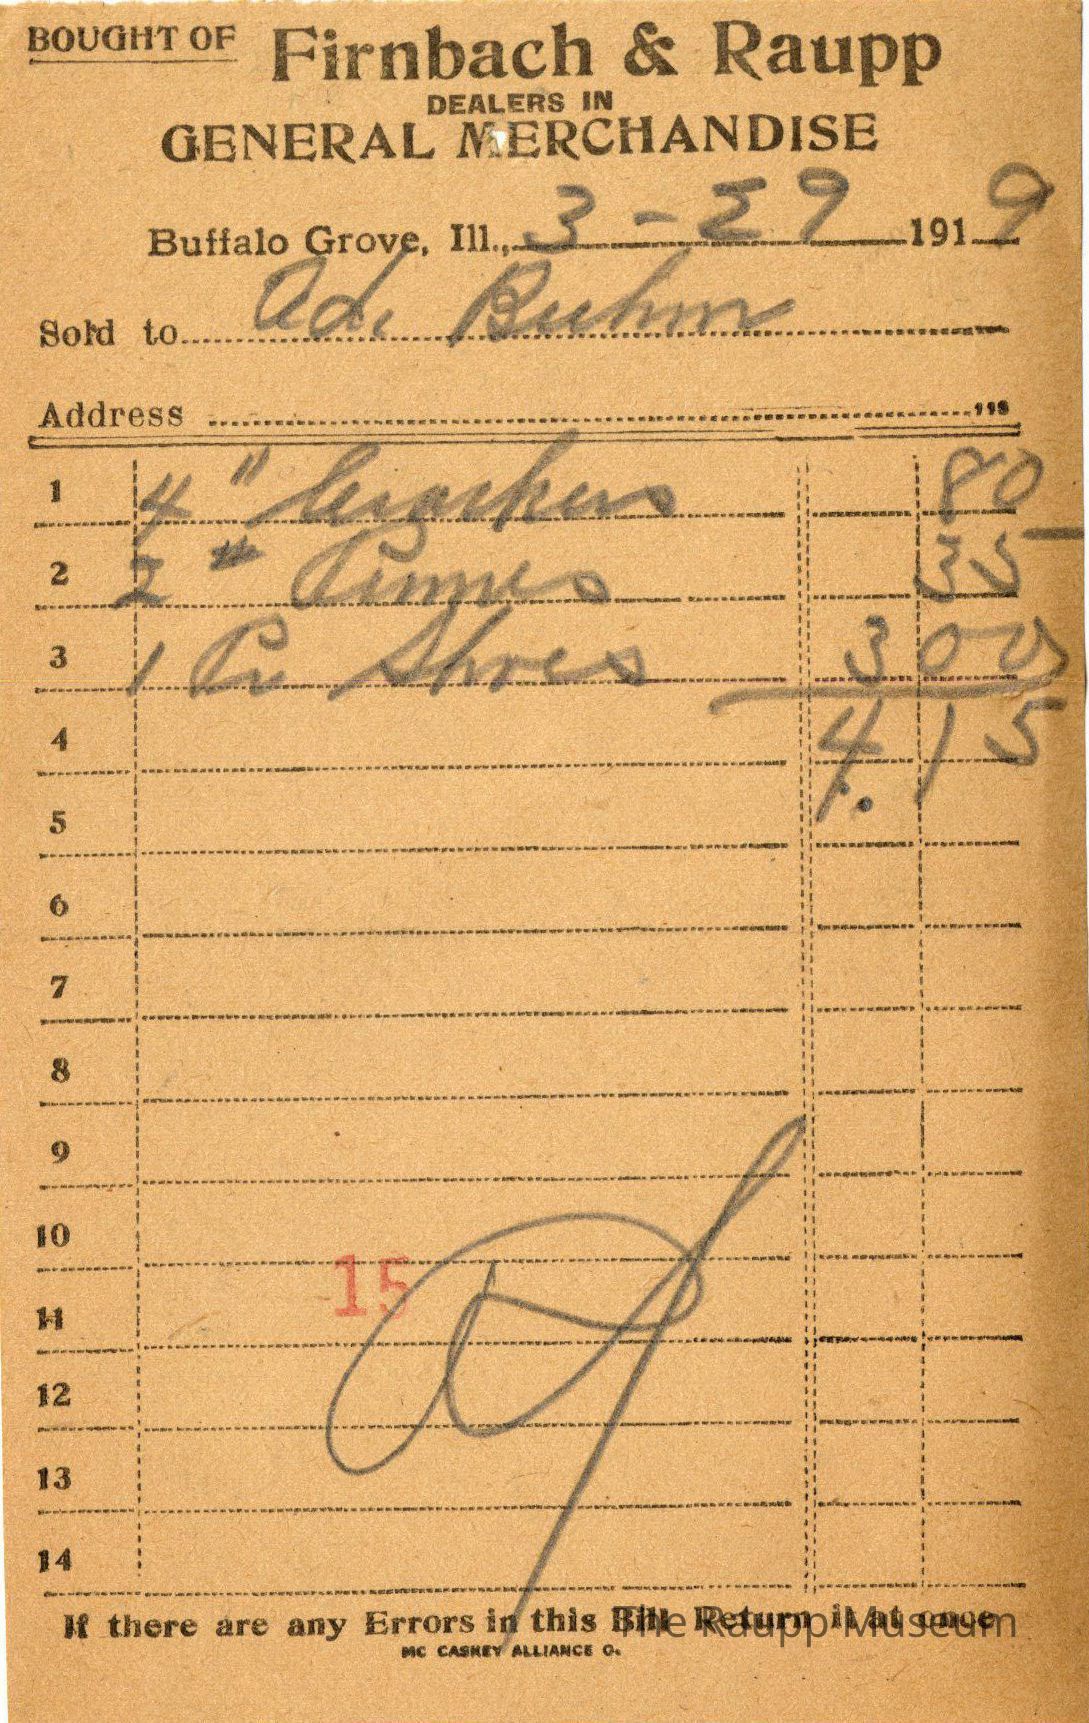 BOUGHT OF Firnbach & Raupp
DEALERS IN
GENERAL MERCHANDISE
Buffalo Grove, Ill., 3 - 29 1919
Sold to Ad. Buhm
Address
1 4 " Crackers 80
2 2 " 35
3 1 Pr Shoes 3 00
4 4.15
5
6
7
8
9
10
15
11
12
13
14
If there are any Errors in this Bill Return it at once
The Raupp Museum
MC CASKEY ALLIANCE O.